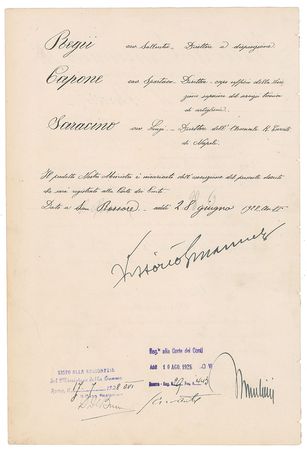 Regii cav. Sallustio - Direttore a disposizione
Capone cav. Spartaco - Direttore - capo ufficio della Dire
zione superiore del servizio tecnico
di artiglieria
Saracino cav. Luigi - Direttore dell'Arsenale R. Esercito
di Napoli.
Il predetto Nostro Ministro è incaricato dell'esecuzione del presente decreto
che sarà registrato alla Corte dei Conti
Dato a San Rossore - addì 28 giugno 1928
Vittorio Emanuele
VISTO ALLA RAGIONERIA
del Ministero della Guerra
Roma, 1928 VI
Reg.to alla Corte dei Conti
Addì 10 AGO. 1928
Guerra - Reg. N. 27 F.
Mussolini